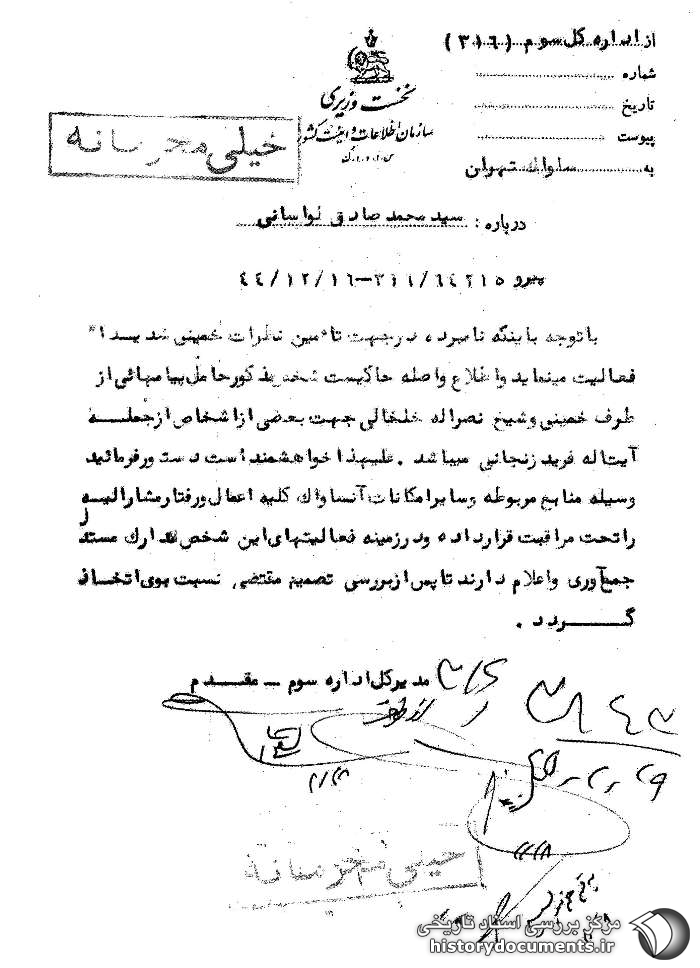 از اداره کل سوم (۳۱۶)
شماره
تاریخ
پیوست
به ساواك تهران
نخست وزیری
سازمان اطلاعات و امنیت کشور
س.ا.و.ا.ک
خیلی محرمانه
درباره : سید محمد صادق لواسانی
پیرو ۳۱۶/۶۴۲۱۵-۴۴/۱۲/۱۶
با توجه باینکه نامبرده در جهت تامین نظرات خمینی شدیدا"
فعالیت مینماید و اطلاع واصله حاکیست شخص مذکور حامل پیامهائی از
طرف خمینی و شیخ نصراله خلخالی جهت بعضی از اشخاص از جمله
آیت اله فرید زنجانی میباشد . علیهذا خواهشمند است دستور فرمائید
وسیله منابع مربوطه و سایر امکانات آنساواك کلیه اعمال و رفتار مشارالیه
را تحت مراقبت قرار داده و در زمینه فعالیتهای این شخص مدارك مستدل
جمع آوری و اعلام دارند تا پس از بررسی تصمیم مقتضی نسبت بوی اتخاذ
گردد .
مدیرکل اداره سوم - مقدم
خیلی محرمانه
مرکز بررسی اسناد تاریخی
historydocuments.ir